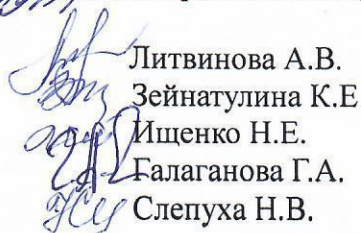 Литвинова А.В.
Зейнатулина К.Е
Ищенко Н.Е.
Галаганова Г.А.
Слепуха Н.В.